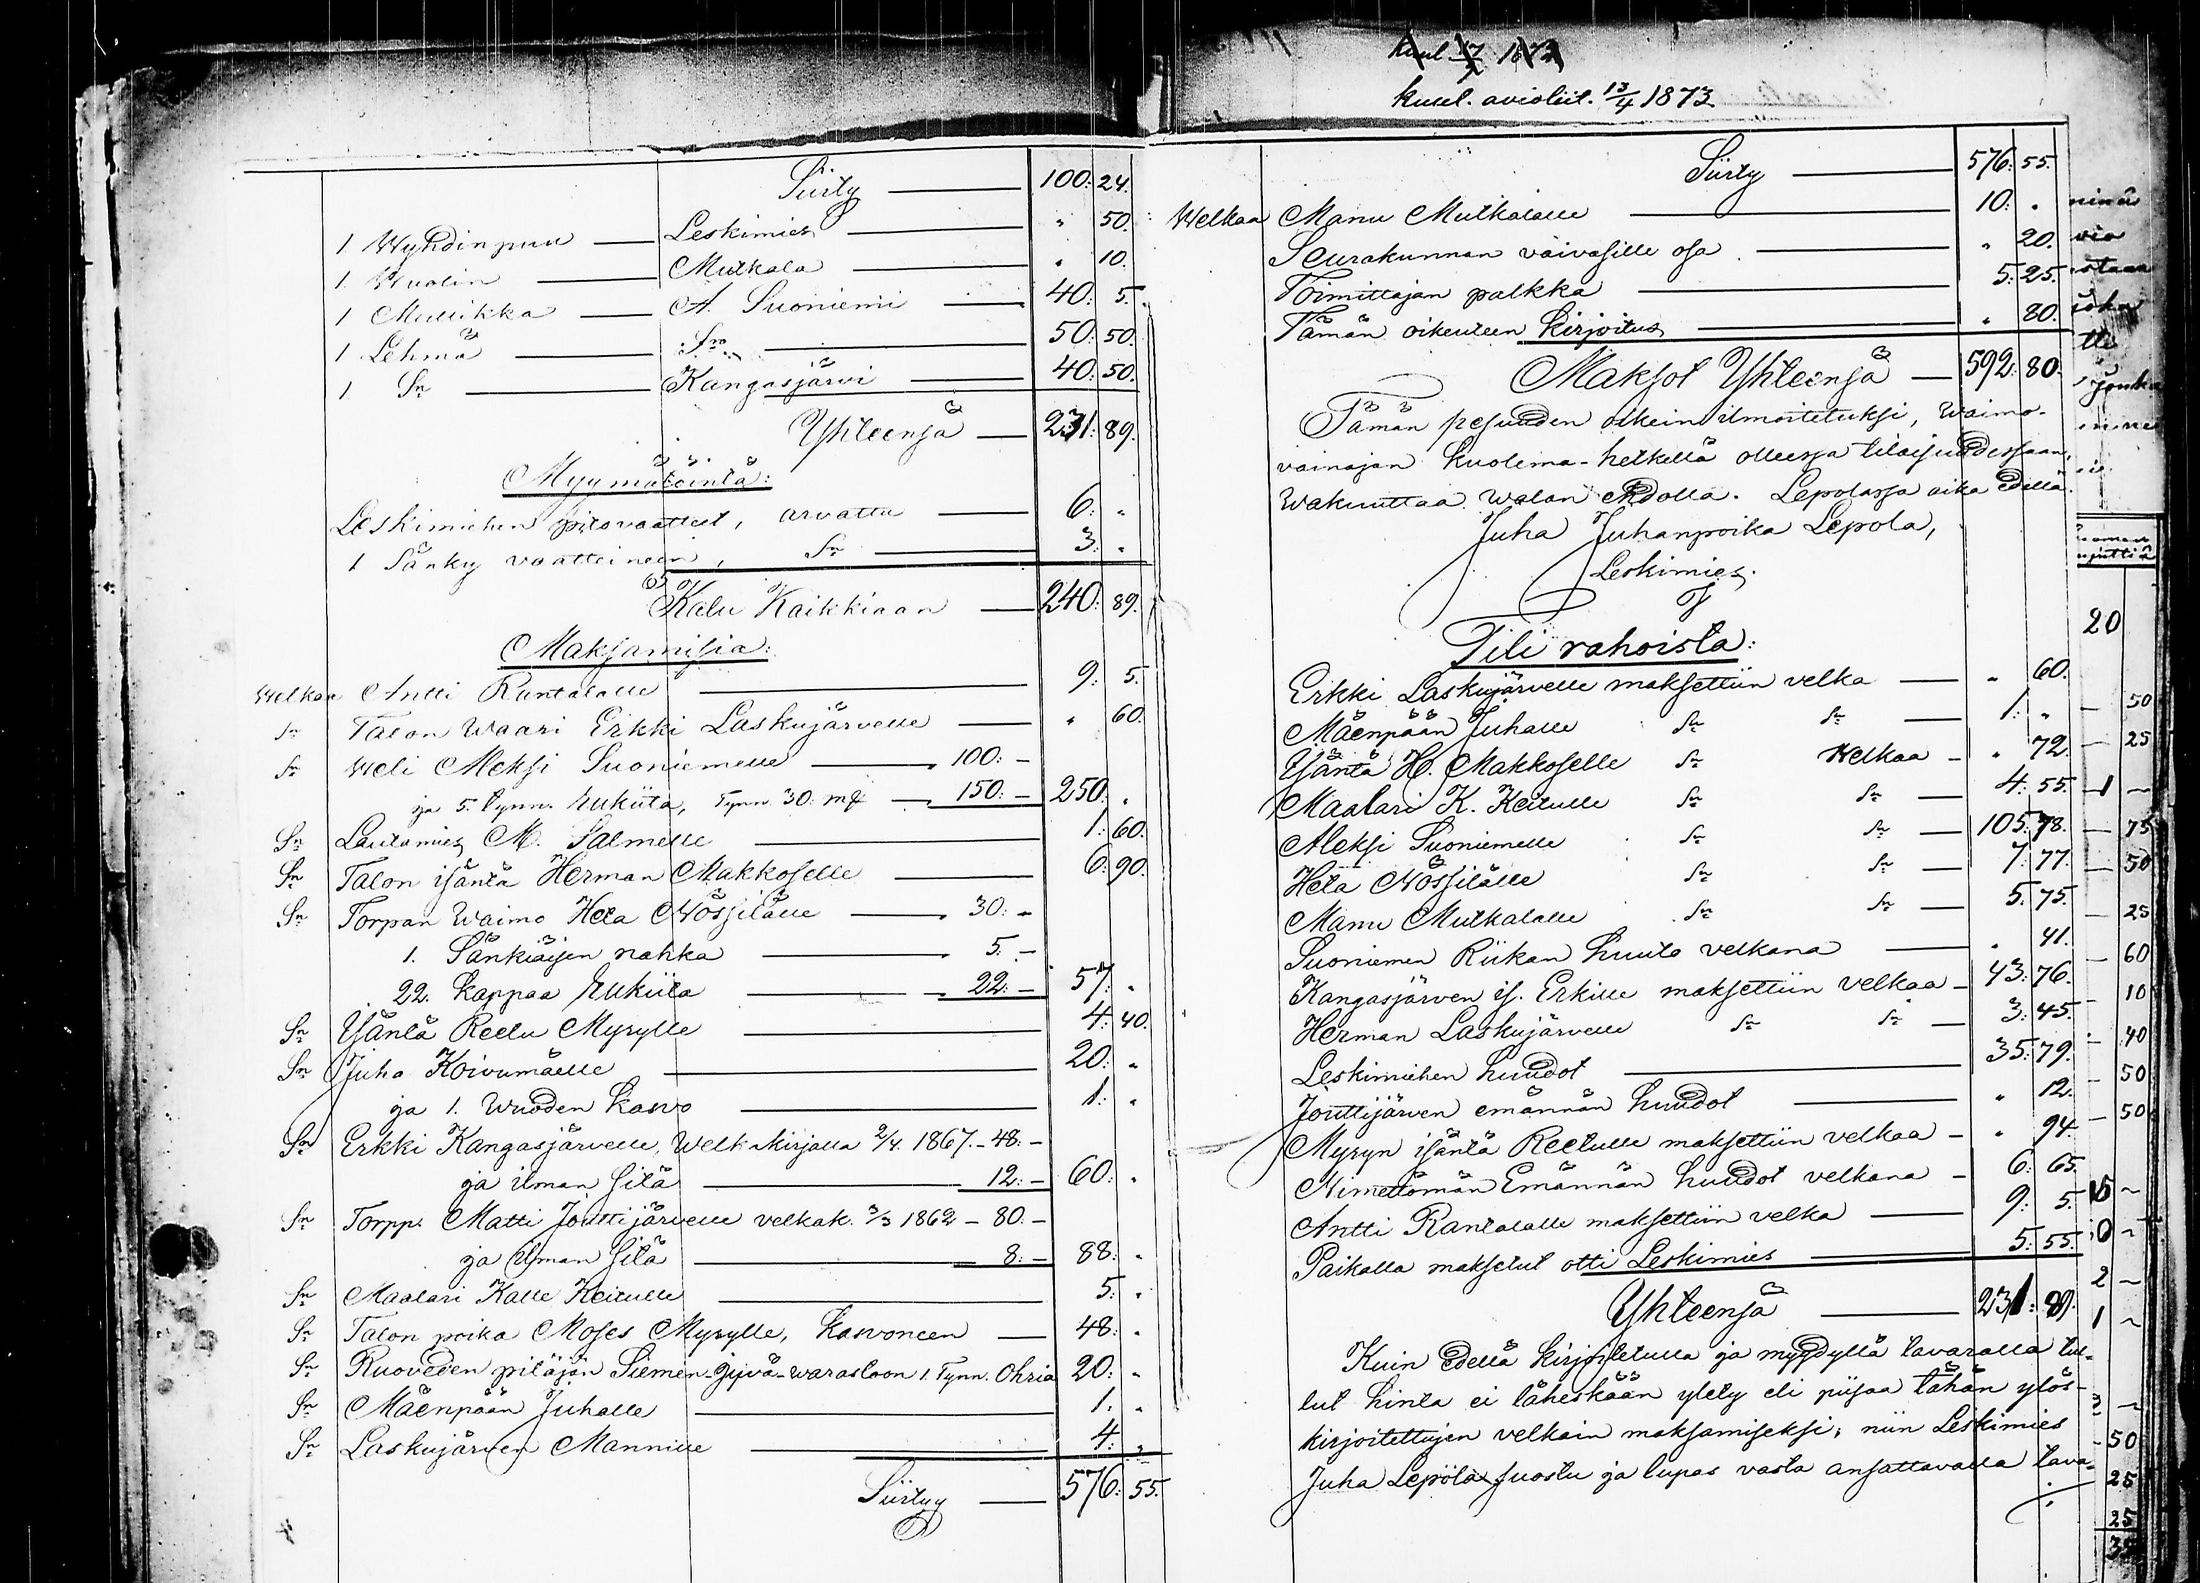 Siirty — 100: 24.
1 Wyhdinpuu — Leskimies — " 50.
1 Wuolin — Mutkala — " 10.
1 Mullikka — A. Suoniemi — 40: 5.
1 Lehmä — Sn — 50: 50.
1 Sn — Kangasjärvi — 40: 50.
Yhteensä — 231: 89.
Myymätöintä:
Leskimiehen pitovaatteet, arvattu — 6: "
1 Sänky vaatteineen, Sn — 3: "
Kalu Kaikkiaan — 240: 89.
Maksamisia:
Welkaa Antti Rantalalle — 9: 5.
Sn Talon Waari Erkki Laskujärvelle — " 60.
Sn Weli Aleksi Suoniemelle — 100: -
ja 5. tynn. Rukiita, Tynn. 30. mk — 150: - 250: "
Sn Lautamies M. Salmelle — 1: 60.
Sn Talon isäntä Herman Makkoselle — 6: 90.
Sn Torpan Waimo Heta Nössilälle — 30: -
1. Sänkiäisen nahka — 5: -
22. Kappaa Rukiita — 22: - 57: "
Sn Isäntä Reetu Myrylle — 4: 40.
Sn Juha Koivumäelle — 20: "
ja 1. Wuoden Kasvo — 1: "
Sn Erkki Kangasjärvelle, Welkakirjalla 2/4. 1867. - 48: -
ja ilman sitä — 12: - 60: "
Sn Torpp. Matti Jouttijärvelle velkak. 3/3 1862 - 80: -
ja ilman sitä — 8: - 88: "
Sn Maalari Kalle Keitulle — 5: "
Sn Talon poika Moses Myrylle, Kasvoneen — 48: "
Sn Ruoveden pitäjän Siemen-Jyvä-warastoon 1. Tynn. Ohria 20: "
Sn Mäenpään Juhalle — 1: "
Sn Laskujärven Mannille — 4: "
Siirtyy — 576: 55.
kuul. avioliit. 13/4 1873
Siirty — 576: 55.
Welkaa Manu Mutkalalle — 10: "
Seurakunnan vaivasille osa — " 20.
Toimittajan palkka — 5: 25.
Tämän oikeuteen Kirjoitus — " 80.
Maksot Yhteensä — 592: 80.
Tämän pesuuden oikein ilmoitetuksi, Waimo-
vainajan Kuolema-hetkellä olleessa tilaisuudessaan,
Wakuuttaa Walan ehdolla. Lepolassa aika edellä.
Juha Juhanpoika Lepola,
Leskimies.
Tili rahoista:
Erkki Laskujärvelle maksettiin velka — " 60.
Mäenpään Juhalle Sn Sn — 1: "
Isäntä H. Makkoselle Sn Welkaa — " 72.
Maalari K. Keitulle Sn Sn — 4: 55.
Aleksi Suoniemelle Sn Sn — 105: 78.
Heta Nössilälle Sn Sn — 7: 77.
Manu Mutkalalle Sn Sn — 5: 75.
Suoniemen Riikan huuto velkana — " 41.
Kangasjärven is. Erkille maksettiin velkaa — 43: 76.
Herman Laskujärvelle Sn Sn — 3: 45.
Leskimiehen huudot — 35: 79.
Jouttijärven emännän huudot — " 12.
Myryn isäntä Reetulle maksettiin velkaa — " 94.
Nimettömän Emännän huudot velkana — 6: 65.
Antti Rantalalle maksettiin velka — 9: 5.
Paikalla maksetut otti Leskimies — 5: 55.
Yhteensä — 231: 89.
Kuin edellä kirjoitetulla ja myydyllä tavaralla tul-
lut hinta ei läheskään ylety eli piisaa tähän ylös-
kirjoitettujen velkain maksamiseksi; niin Leskimies
Juha Lepola suostu ja lupas vasta ansattavalla tava-